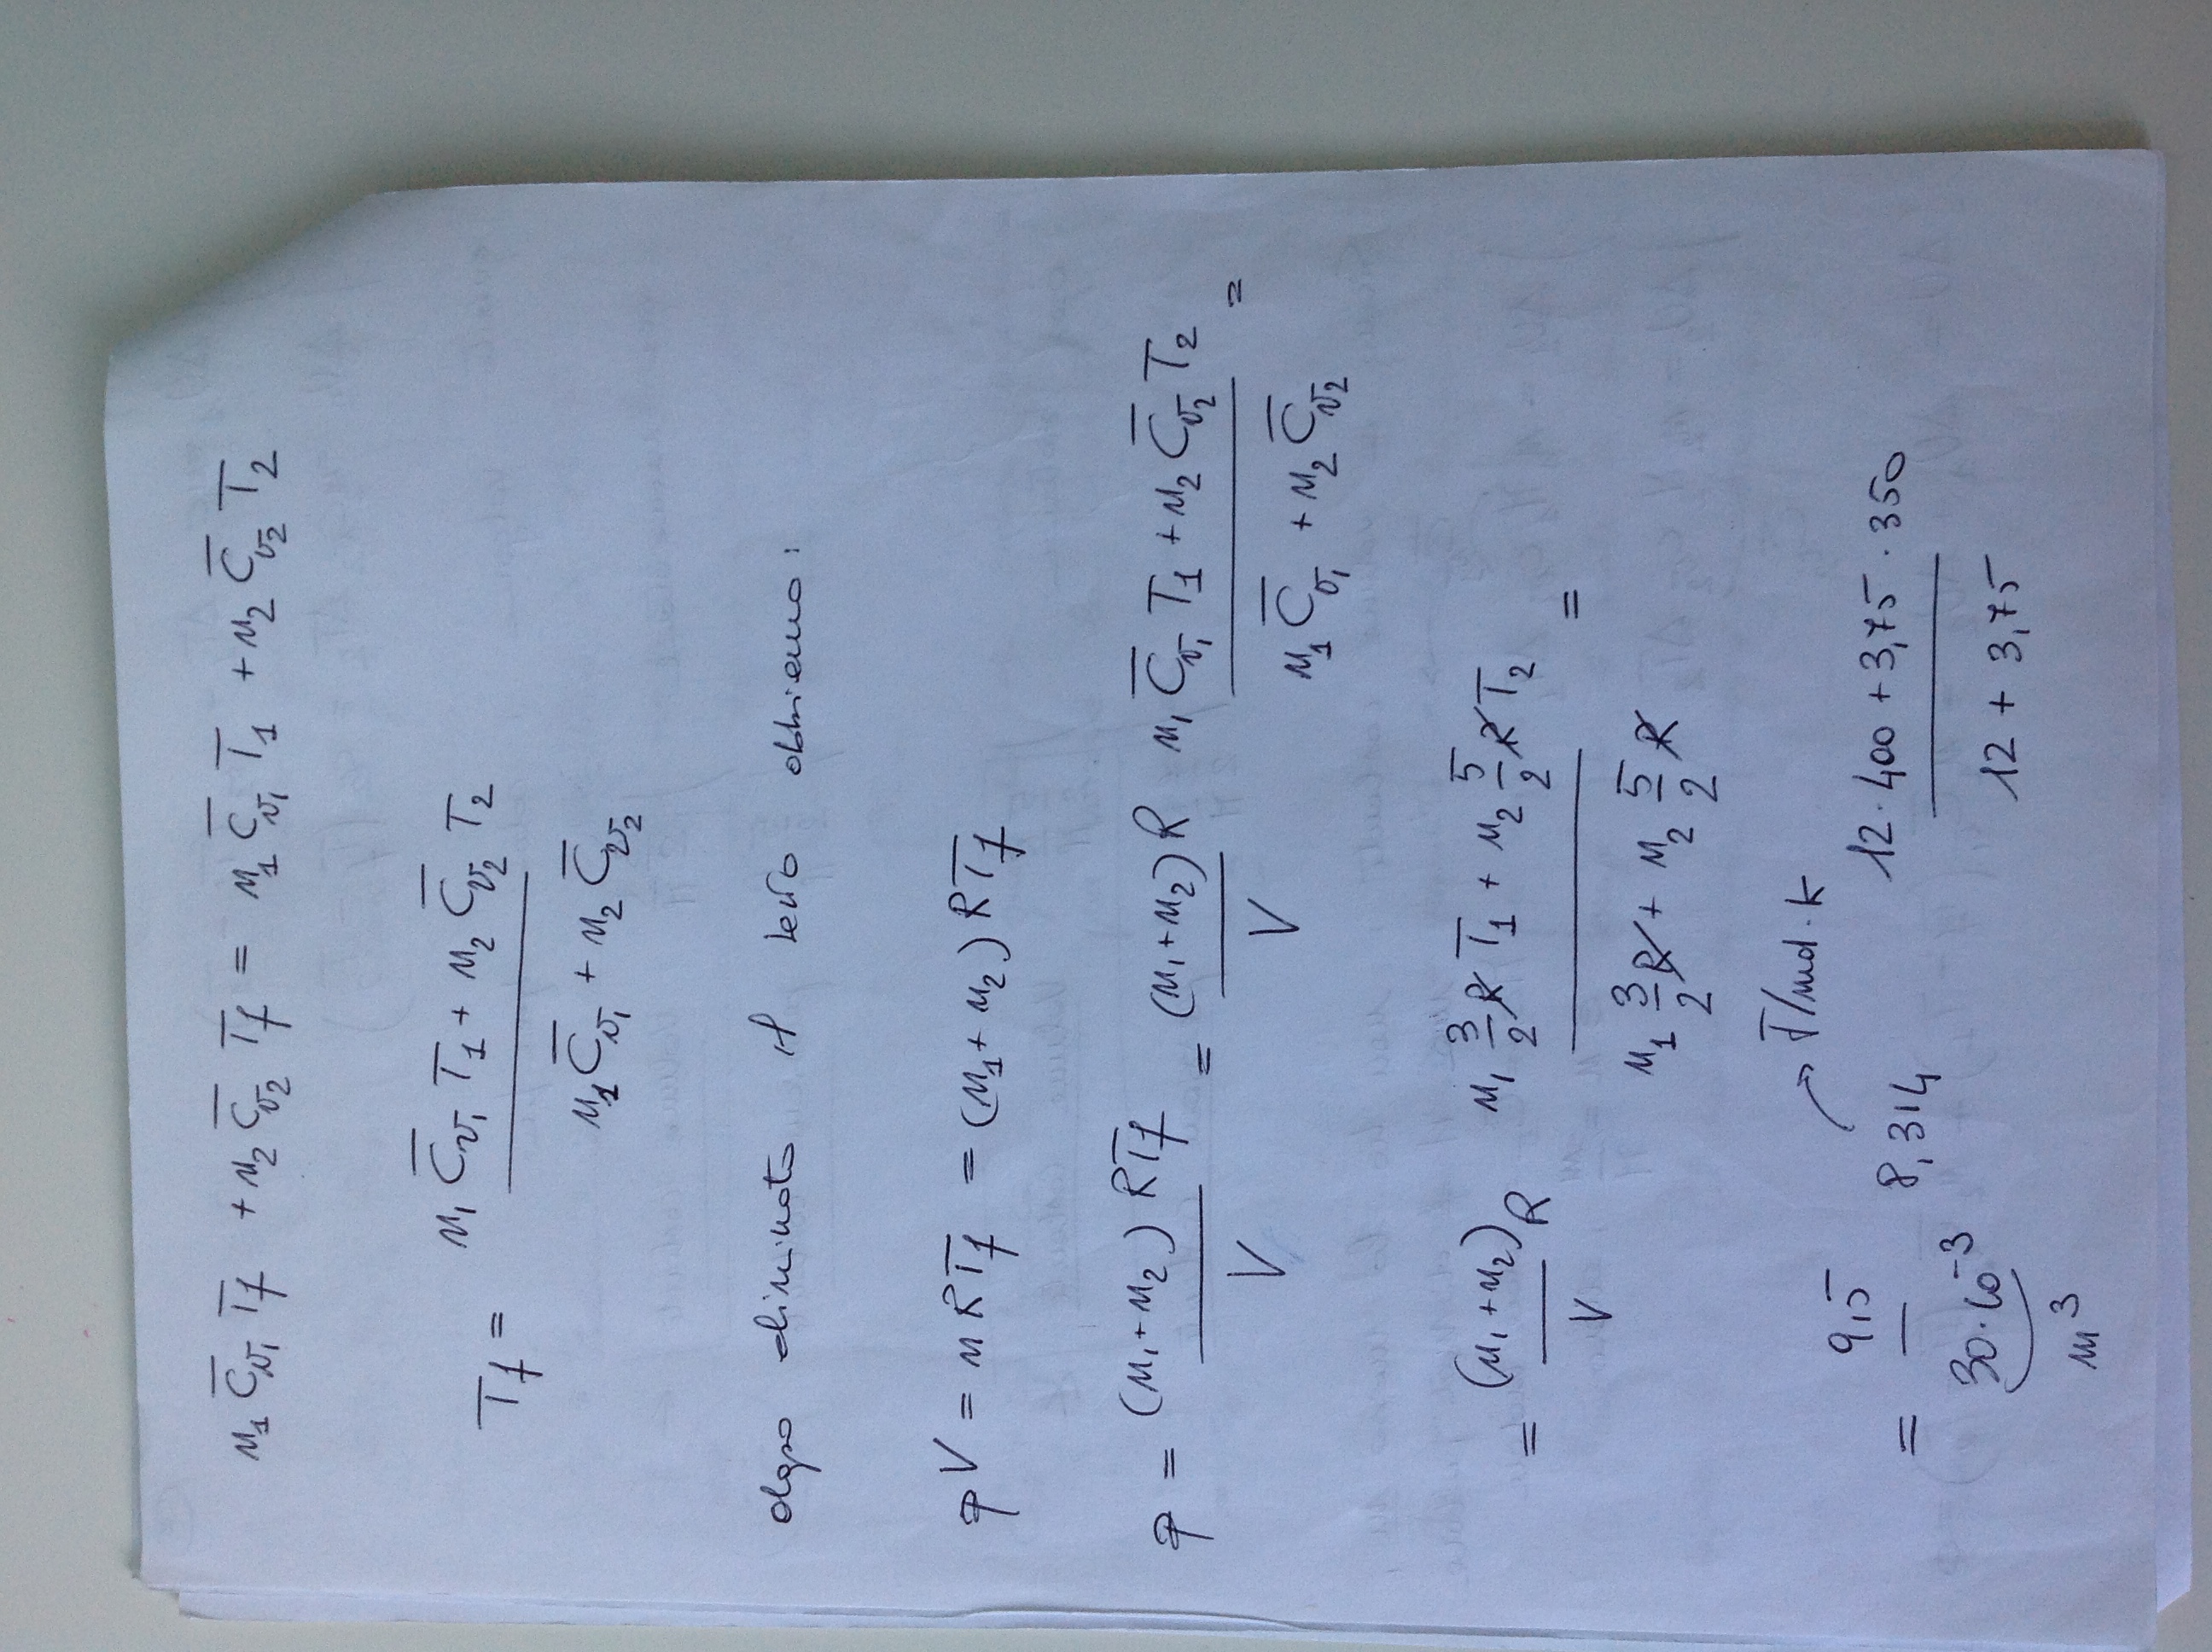 n₁ C̅v₁ Tf + n₂ C̅v₂ Tf = n₁ C̅v₁ T₁ + n₂ C̅v₂ T₂
Tf = (n₁ C̅v₁ T₁ + n₂ C̅v₂ T₂) / (n₁ C̅v₁ + n₂ C̅v₂)
dopo eliminato il setto abbiamo:
pV = nRTf = (n₁ + n₂) RTf
p = (n₁ + n₂) RTf / V = (n₁ + n₂) R / V (n₁ C̅v₁ T₁ + n₂ C̅v₂ T₂) / (n₁ C̅v₁ + n₂ C̅v₂) =
= (n₁ + n₂) / V R (n₁ 3/2 R T₁ + n₂ 5/2 R T₂) / (n₁ 3/2 R + n₂ 5/2 R) =
J/mol·K
= 9,5 / 30·10⁻³ 8,314 (12·400 + 3,75·350) / (12 + 3,75)
m³